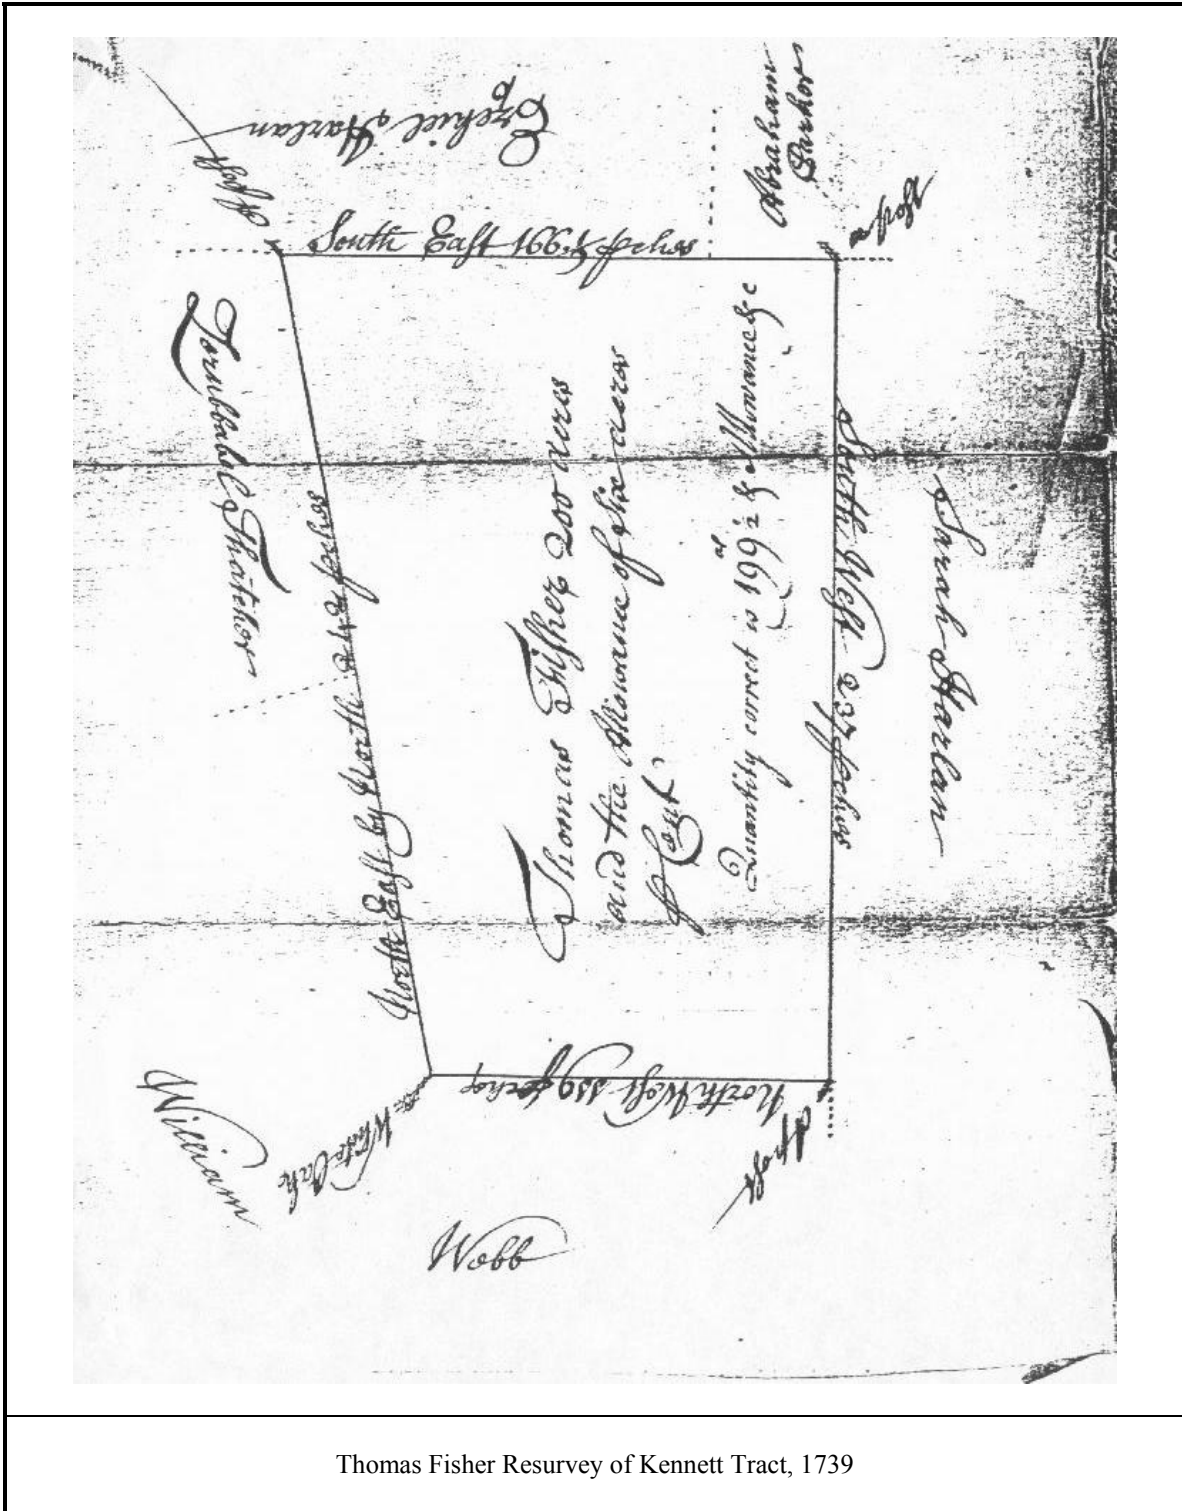 Ezekiel Harlan
Abraham
Parker
A Post
a Post
South East 166¼ perches
Zorubbabel Thatcher
North East by North 242 perches
Thomas Fisher 200 acres
and the Allowance of six acres
p Cent
Quantity correct is 199 ar ½ & Allowance &c
South West 237 perches
Sarah Harlan
North West 119 perches
White Oak
a Post
William
Webb
Thomas Fisher Resurvey of Kennett Tract, 1739